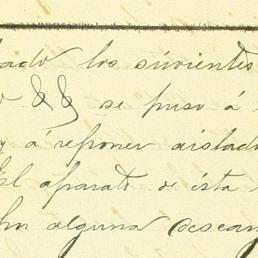 los sirvientes
se puso á
á reponer aislado
El aparato de ésta
alguna descarg